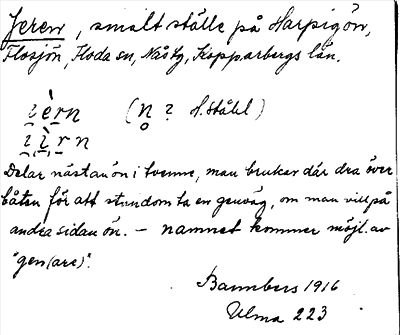 Jeren, smalt ställe på Harpigön,
Flosjön, Floda sn, Nås tg, Kopparbergs län.
ièrn (n̥ ? H. Ståhl)
iìrn
Delar nästan ön i tvenne, man brukar där dra över
båten för att stundom ta en genväg, om man vill på
andra sidan ön. – namnet kommer möjl. av
"gen(are)".
Bannbers 1916
Ulma 223